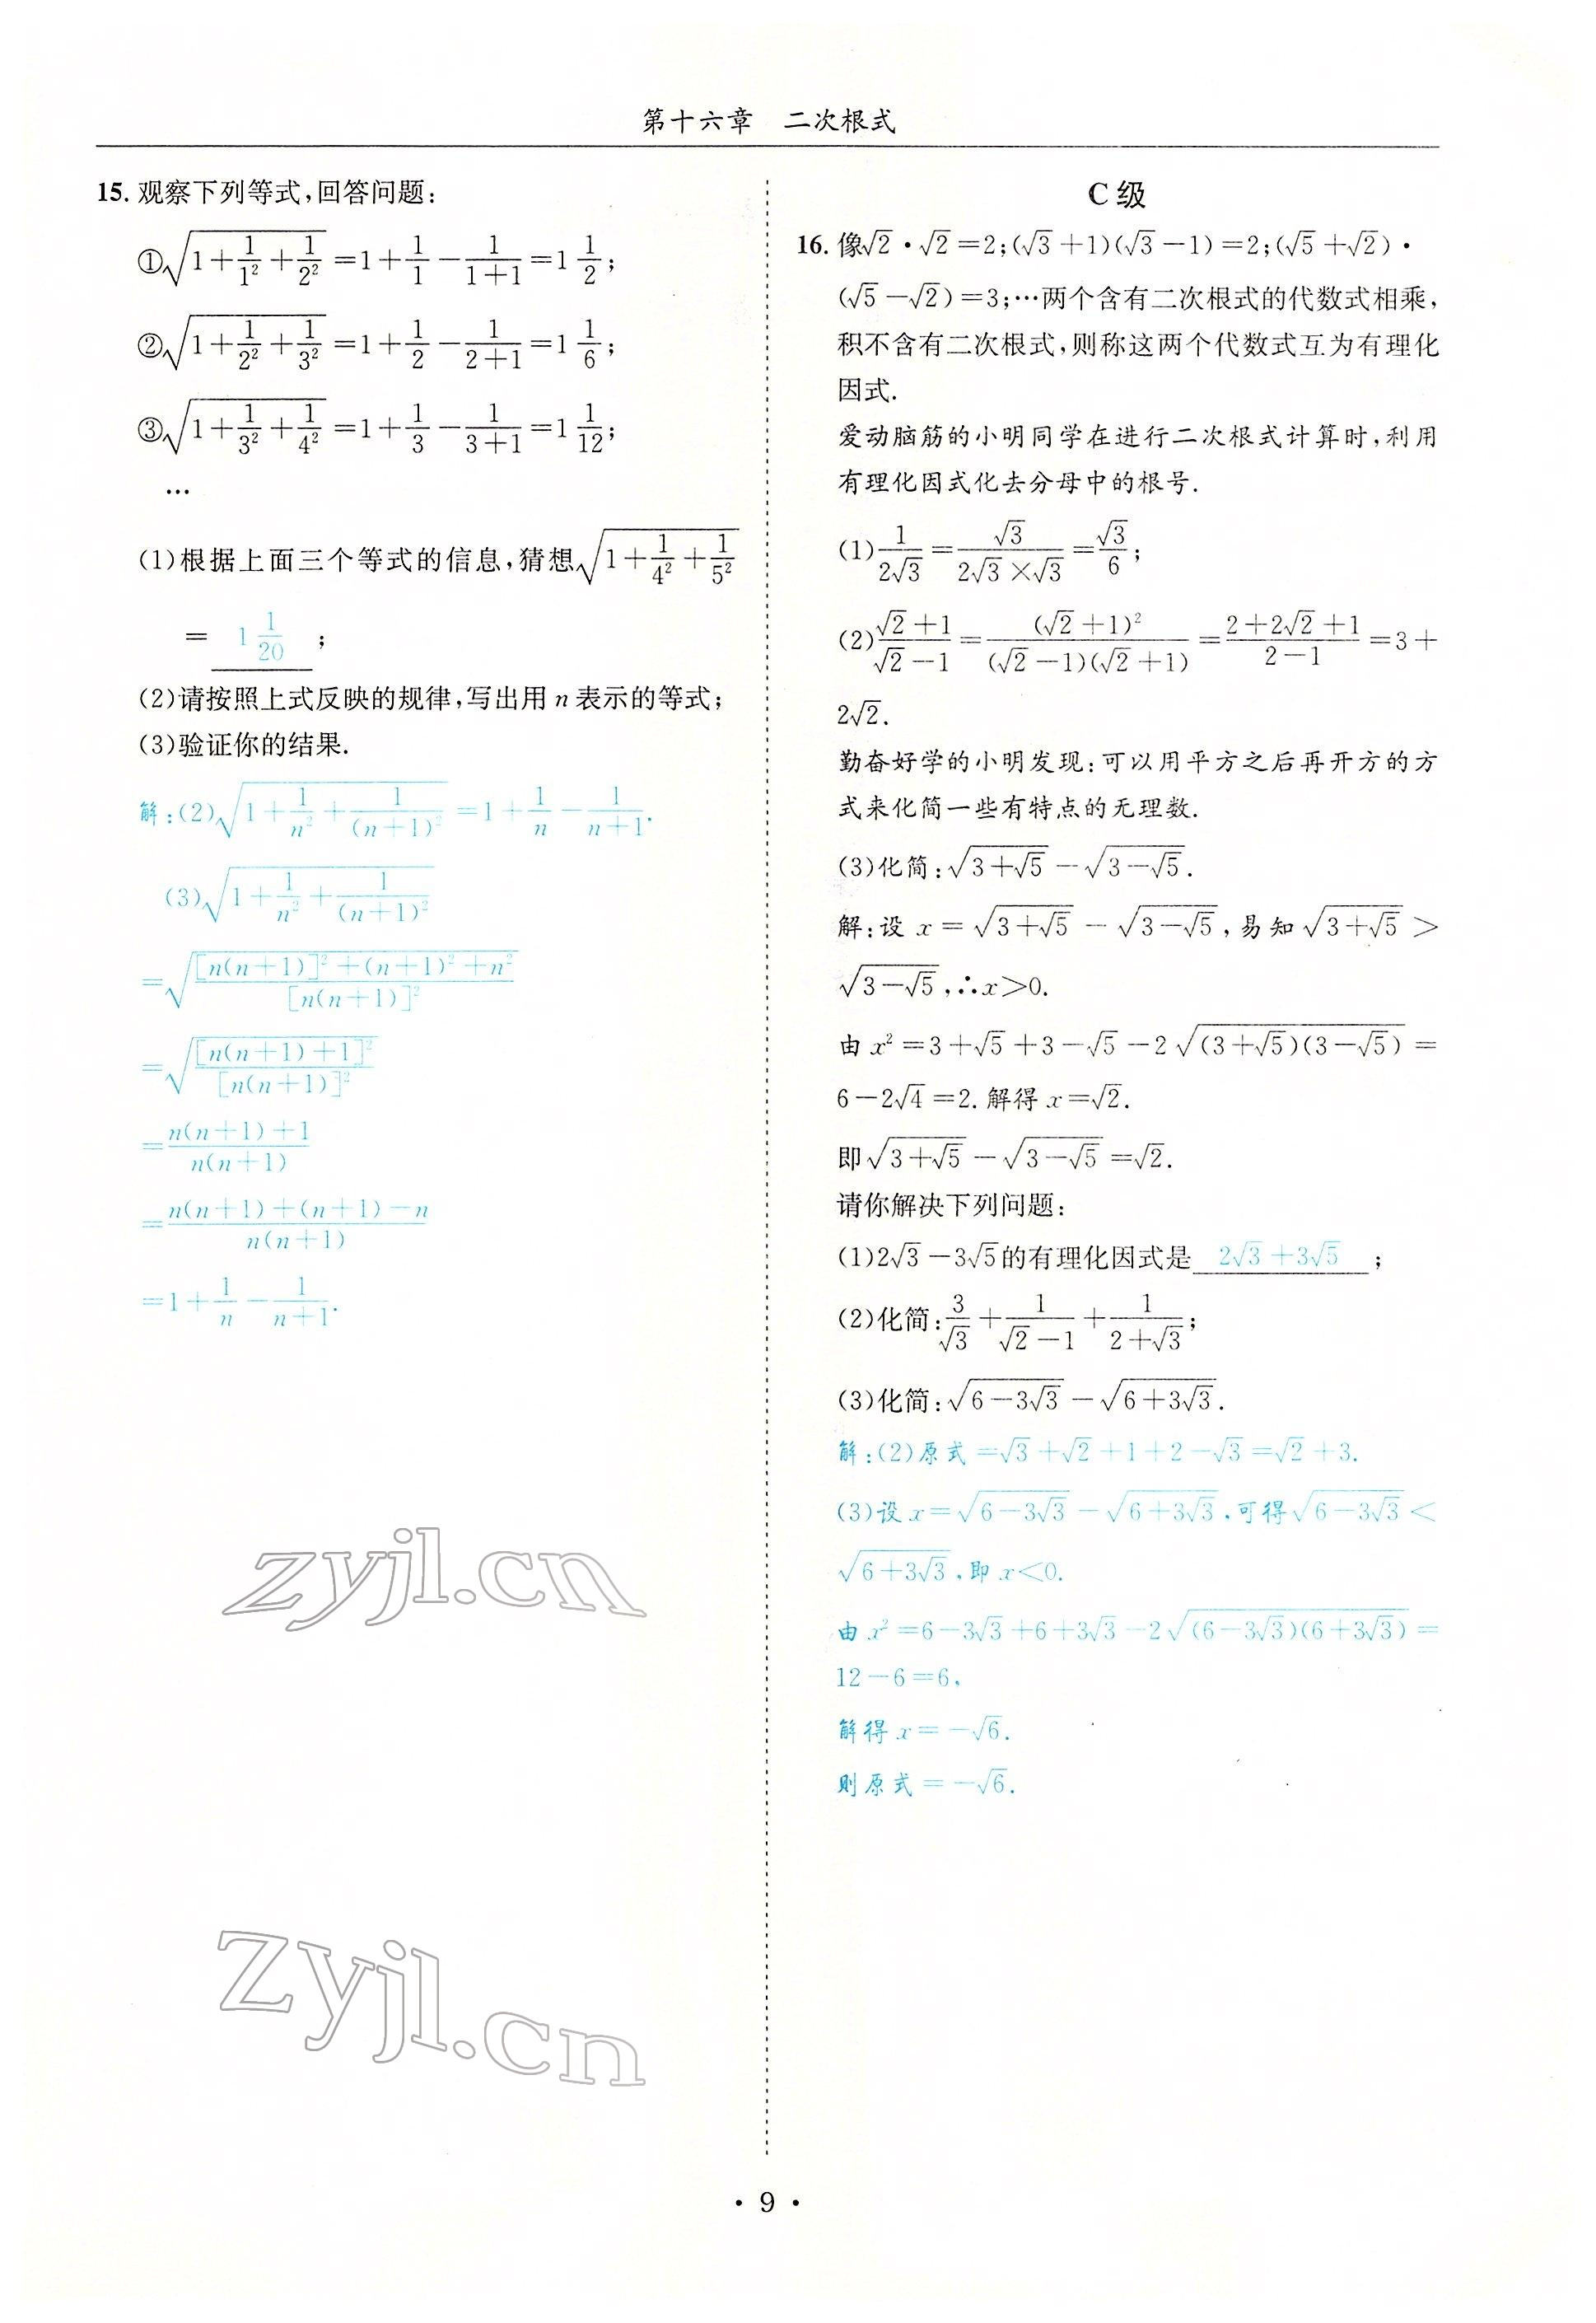 第十六章　二次根式
15. 观察下列等式,回答问题:
①√(1+1/1²+1/2²)=1+1/1−1/(1+1)=1 1/2;
②√(1+1/2²+1/3²)=1+1/2−1/(2+1)=1 1/6;
③√(1+1/3²+1/4²)=1+1/3−1/(3+1)=1 1/12;
…
(1)根据上面三个等式的信息,猜想√(1+1/4²+1/5²)
= 1 1/20 ;
(2)请按照上式反映的规律,写出用 n 表示的等式;
(3)验证你的结果.
解:(2)√(1+1/n²+1/(n+1)²)=1+1/n−1/(n+1).
(3)√(1+1/n²+1/(n+1)²)
=√([n(n+1)]²+(n+1)²+n²)/[n(n+1)]²
=√([n(n+1)+1]²/[n(n+1)]²)
=(n(n+1)+1)/(n(n+1))
=(n(n+1)+(n+1)−n)/(n(n+1))
=1+1/n−1/(n+1).
C 级
16. 像√2·√2=2;(√3+1)(√3−1)=2;(√5+√2)·
(√5−√2)=3;…两个含有二次根式的代数式相乘,
积不含有二次根式,则称这两个代数式互为有理化
因式.
爱动脑筋的小明同学在进行二次根式计算时,利用
有理化因式化去分母中的根号.
(1)1/(2√3)=√3/(2√3×√3)=√3/6;
(2)(√2+1)/(√2−1)=(√2+1)²/((√2−1)(√2+1))=(2+2√2+1)/(2−1)=3+
2√2.
勤奋好学的小明发现:可以用平方之后再开方的方
式来化简一些有特点的无理数.
(3)化简:√(3+√5)−√(3−√5).
解:设 x=√(3+√5)−√(3−√5),易知√(3+√5)>
√(3−√5),∴x>0.
由 x²=3+√5+3−√5−2√((3+√5)(3−√5))=
6−2√4=2.解得 x=√2.
即√(3+√5)−√(3−√5)=√2.
请你解决下列问题:
(1)2√3−3√5的有理化因式是 2√3+3√5 ;
(2)化简:3/√3+1/(√2−1)+1/(2+√3);
(3)化简:√(6−3√3)−√(6+3√3).
解:(2)原式=√3+√2+1+2−√3=√2+3.
(3)设 x=√(6−3√3)−√(6+3√3),可得√(6−3√3)<
√(6+3√3),即 x<0.
由 x²=6−3√3+6+3√3−2√((6−3√3)(6+3√3))=
12−6=6,
解得 x=−√6.
则原式=−√6.
zyjl.cn
zyjl.cn
·9·